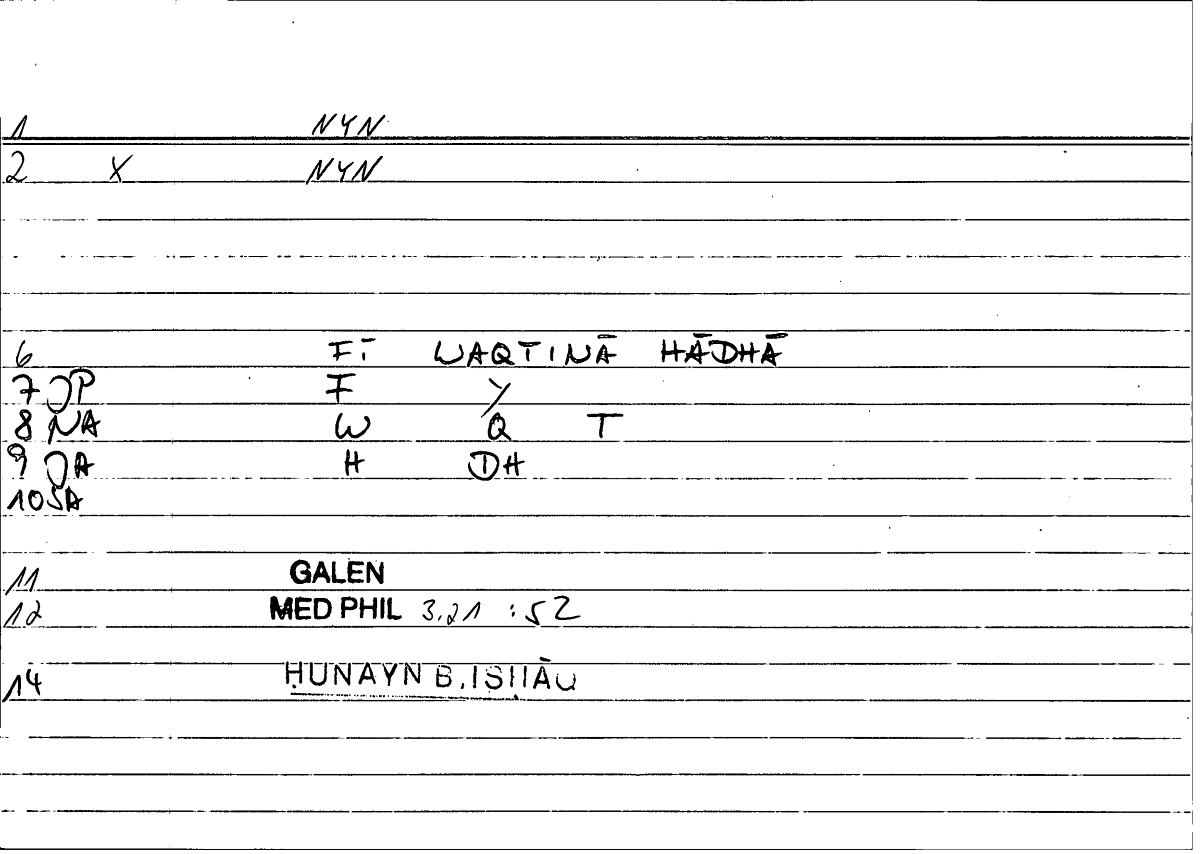 1 NYN
2 X NYN
6 FĪ WAQTINĀ HĀDHĀ
7 JP F Y
8 NA W Q T
9 JA H DH
10 SA
11 GALEN
12 MED PHIL 3.21 :52
14 ḤUNAYN B.ISḤĀQ